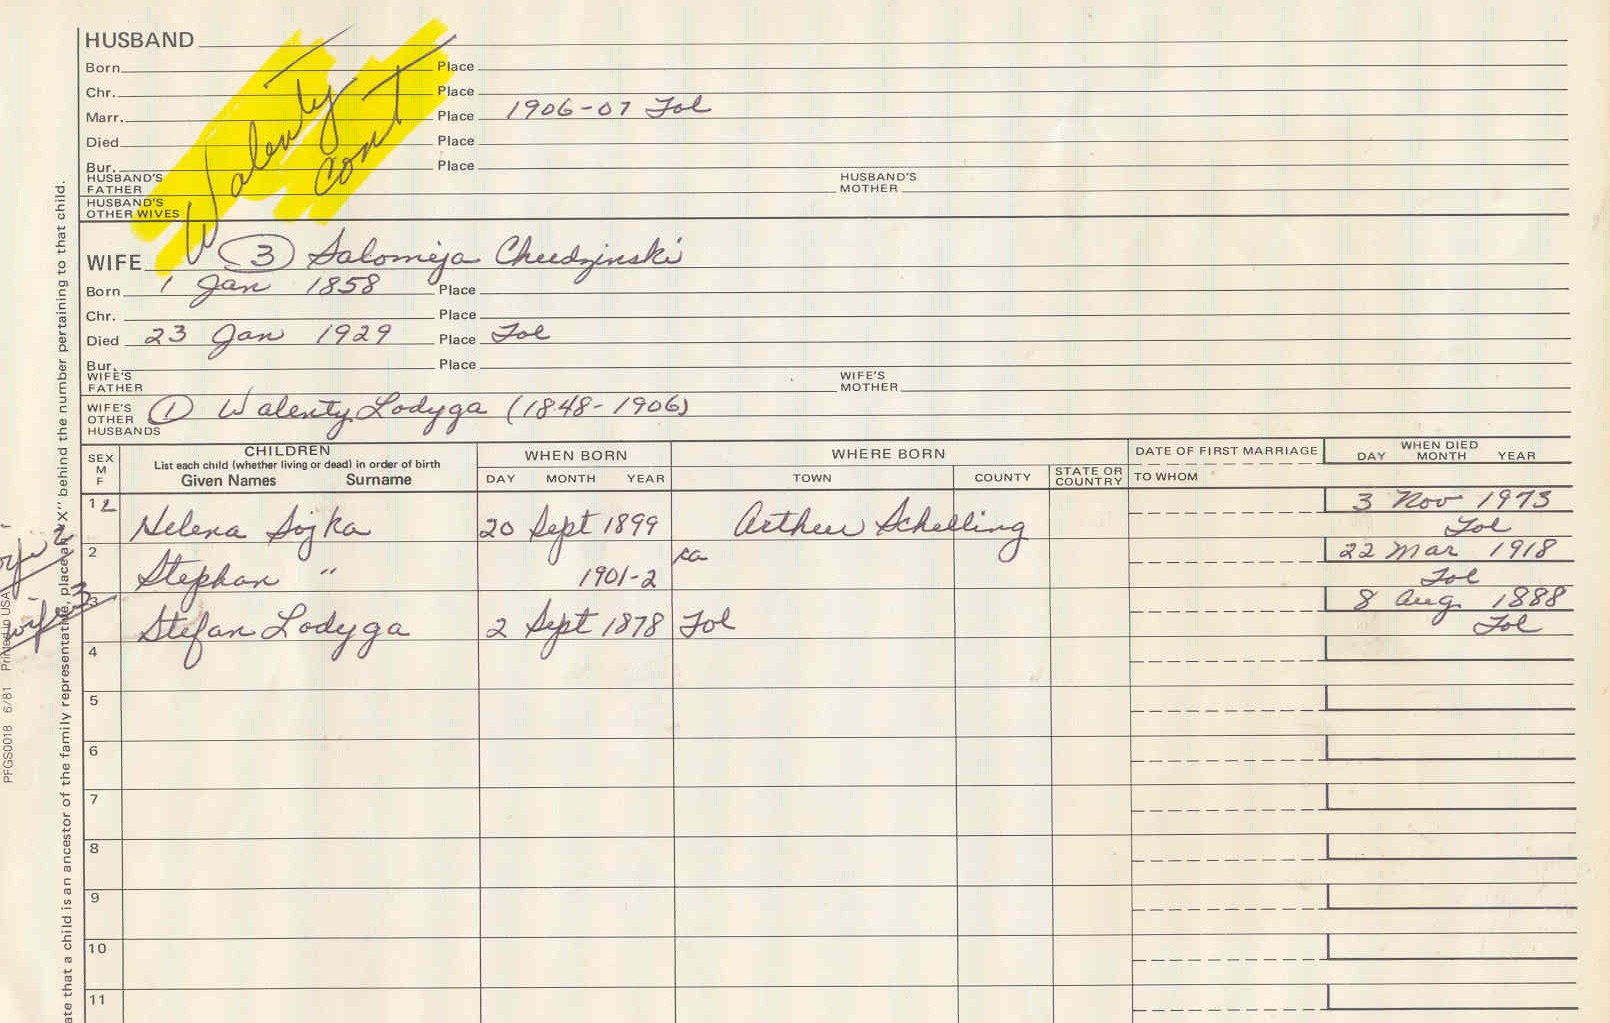 HUSBAND
Born Place
Chr. Place
Marr. Place 1906-07 Tol
Died Place
Bur. Place
HUSBAND'S FATHER HUSBAND'S MOTHER
HUSBAND'S OTHER WIVES
Walenty
cont
WIFE (3) Salomeja Chudzinski
Born 1 Jan 1858 Place
Chr. Place
Died 23 Jan 1929 Place Tol
Bur. Place
WIFE'S FATHER WIFE'S MOTHER
WIFE'S OTHER HUSBANDS (1) Walenty Lodyga (1848-1906)
SEX M F CHILDREN WHEN BORN WHERE BORN DATE OF FIRST MARRIAGE WHEN DIED
List each child (whether living or dead) in order of birth
Given Names Surname DAY MONTH YEAR TOWN COUNTY STATE OR COUNTRY TO WHOM DAY MONTH YEAR
1 2 Helena Sojka 20 Sept 1899 Arthur Schelling 3 Nov 1973 Tol
2 Stephan " 1901-2 ca 22 Mar 1918 Tol
3 Stefan Lodyga 2 Sept 1878 Tol 8 Aug 1888 Tol
4
5
6
7
8
9
10
11
wife 2
wife 3
PFGS0018 6/81 Printed in USA
ate that a child is an ancestor of the family representative, place an "X" behind the number pertaining to that child.